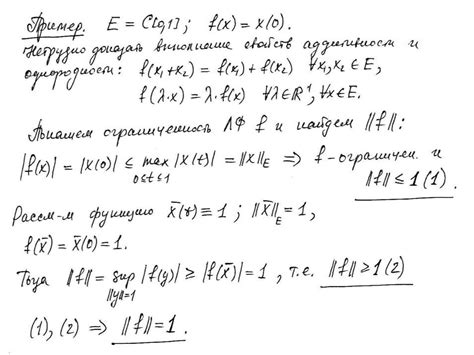 Пример. E = C[0,1]; f(x) = x(0).
Нетрудно доказать выполнение свойств аддитивности и
однородности: f(x₁+x₂) = f(x₁) + f(x₂) ∀x₁,x₂ ∈ E,
f(λ·x) = λ·f(x) ∀λ∈ℝ¹, ∀x∈E.
Докажем ограниченность ЛФ f и найдем ‖f‖:
|f(x)| = |x(0)| ≤ max_{0≤t≤1} |x(t)| = ‖x‖_E ⇒ f - ограничен. и
‖f‖ ≤ 1 (1).
Рассм-м функцию x̄(t) ≡ 1; ‖x̄‖_E = 1,
f(x̄) = x̄(0) = 1.
Тогда ‖f‖ = sup_{‖y‖=1} |f(y)| ≥ |f(x̄)| = 1, т.е. ‖f‖ ≥ 1 (2)
(1), (2) ⇒ ‖f‖ = 1.